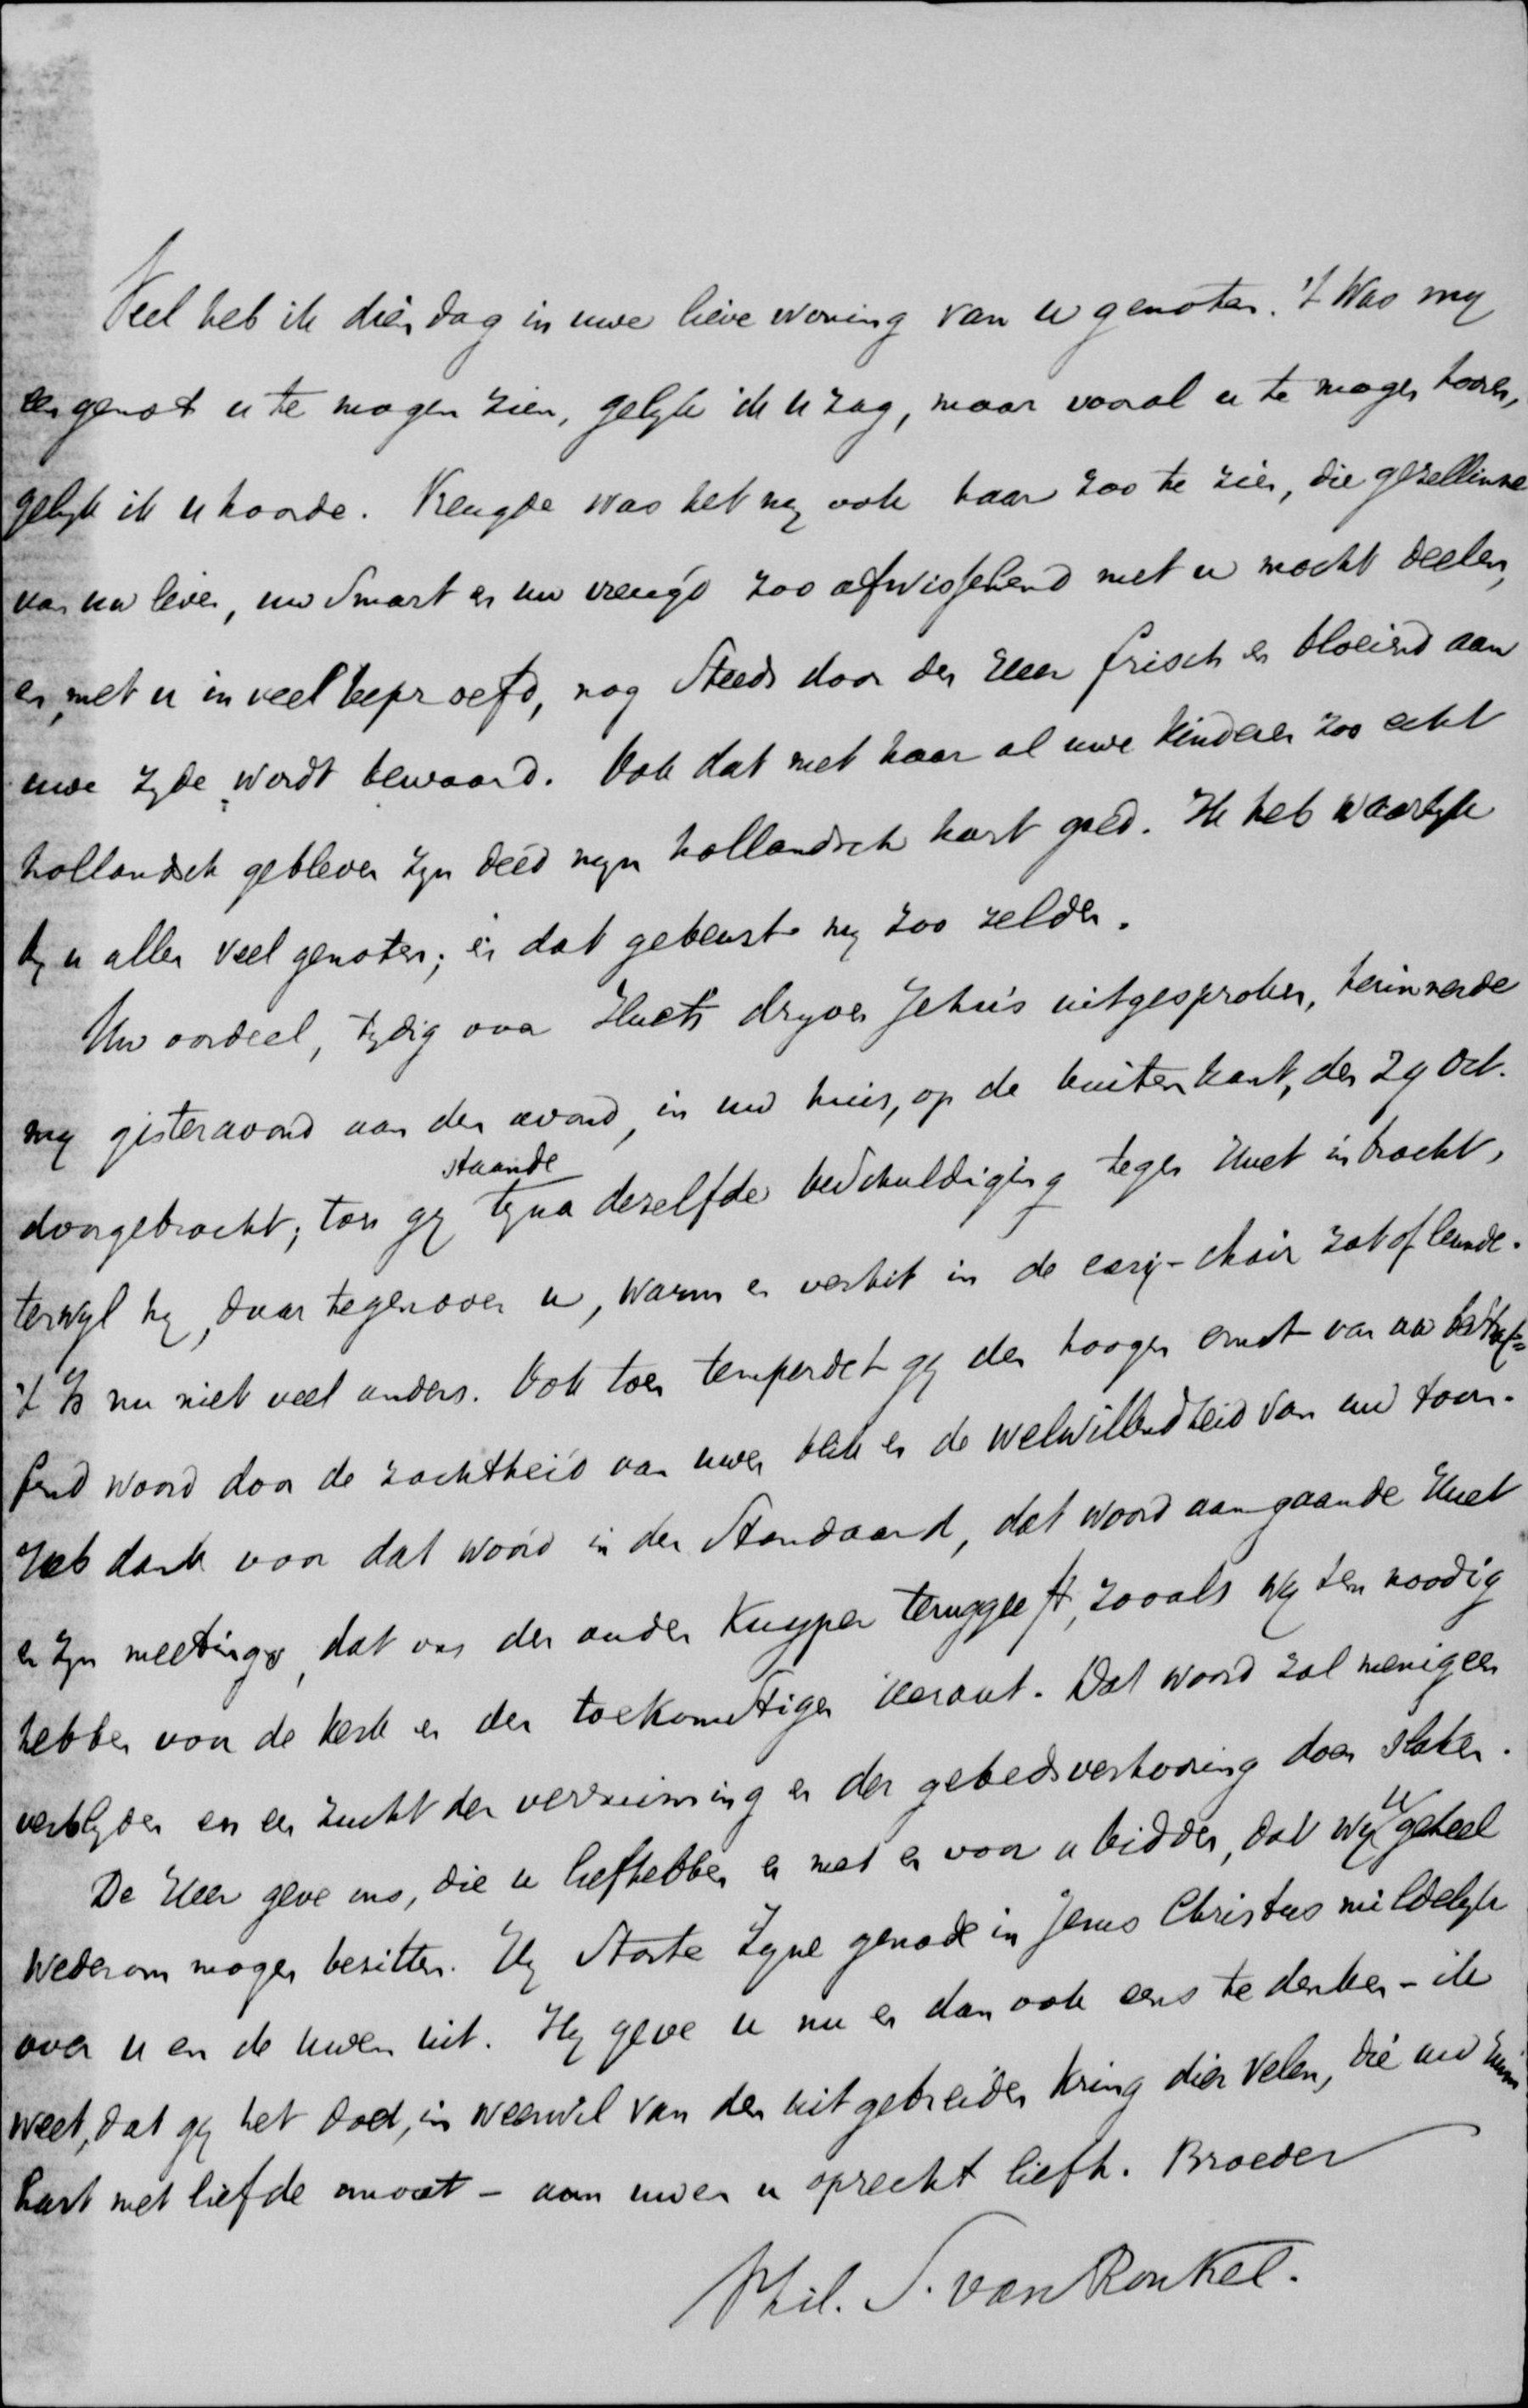 Veel heb ik dien dag in uwe lieve woning van u genoten. 't Was my
een genot u te mogen zien, gelyk ik u zag, maar vooral u te mogen hooren,
gelyk ik u hoorde. Vreugde was het my ook haar zoo te zien, die gezellinne
van uw leven, uw smart en uw vreugd zoo afwisselend met u mocht deelen,
en, met u in veel beproefd, nog steeds door den Heer frisch en bloeiend aan
uwe zyde wordt bewaard. Ook dat met haar al uwe kinderen zoo echt
hollandsch gebleven zyn deed myn hollandsch hart goed. Ik heb waarlyk
by u allen veel genoten; en dat gebeurt my zoo zelden.
Uw oordeel, tydig over Huet's dryven Jehu's uitgesproken, herinnerde
my gisteravond aan den avond, in uw huis, op de buitenkant, den 29 Oct.
doorgebracht; toen gy staande byna dezelfde beschuldiging tegen Huet inbracht,
terwyl hy, daar tegenover u, warm en verhit in de easy-chair zat of leunde.
't Is nu niet veel anders. Ook toen temperdet gy den hoogen ernst van uw bestraf=
fend woord door de zachtheid van uwen blik en de welwillendheid van uw toon.
Heb dank voor dat woord in den Standaard, dat woord aangaande Huet
en zyn meetings, dat ons den ouden Kuyper teruggeeft, zooals wy hem noodig
hebben voor de kerk en den toekomstigen Heraut. Dat woord zal menigeen
verblyden en een zucht der verruiming en der gebedsverhooring doen slaken.
De Heer geve ons, die u liefhebben en met en voor u bidden, dat wy u geheel
wederom mogen bezitten. Hy storte Zyne genade in Jezus Christus mildelyk
over u en de uwen uit. Hy geve u nu en dan ook eens te denken - ik
weet, dat gy het doet, in weerwil van den uitgebreiden kring dier velen, die uw ruim
hart met liefde omvat - aan uwen u oprecht liefh. Broeder
Phil. S. van Ronkel.